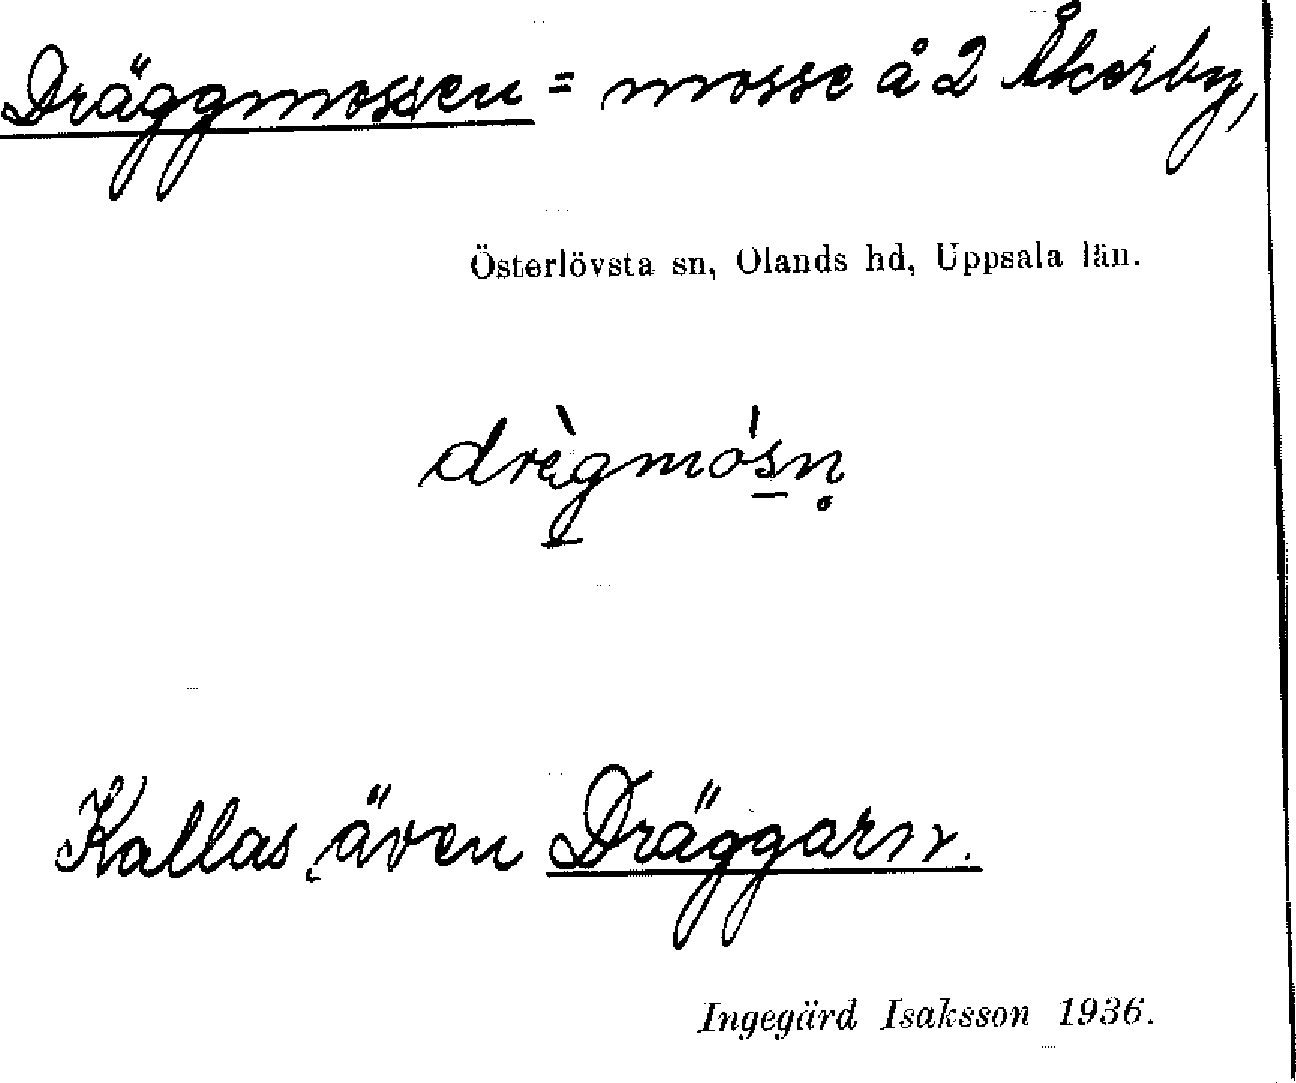 Dräggmossen = mosse å 2 Åkerby,
Österlövsta sn, Olands hd, Uppsala län.
drègmósn̥
Kallas även Dräggarn.
Ingegärd Isaksson 1936.